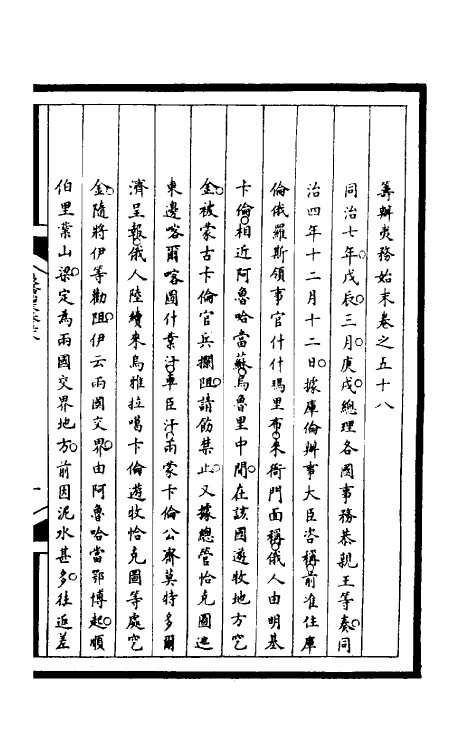 筹辦夷務始末卷之五十八
同治七年戊辰三月庚戌總理各國事務恭親王等奏同
治四年十二月十二日據庫倫辦事大臣咨稱前准住庫
倫俄羅斯領事官什什瑪里布來衙門面稱俄人由明基
卡倫相近阿魯哈當蘇烏魯里中間在該國遊牧地方挖
金被蒙古卡倫官兵攔阻請飭禁止又據總管恰克圖迤
東邊喀爾喀圖什業汗車臣汗兩蒙卡倫公齊莫特多爾
濟呈報俄人陸續來烏雅拉噶卡倫遊牧恰克圖等處挖
金隨將伊等勸阻伊云兩國交界由阿魯哈當鄂博起順
伯里葉山梁定為兩國交界地方前因泥水甚多往返差